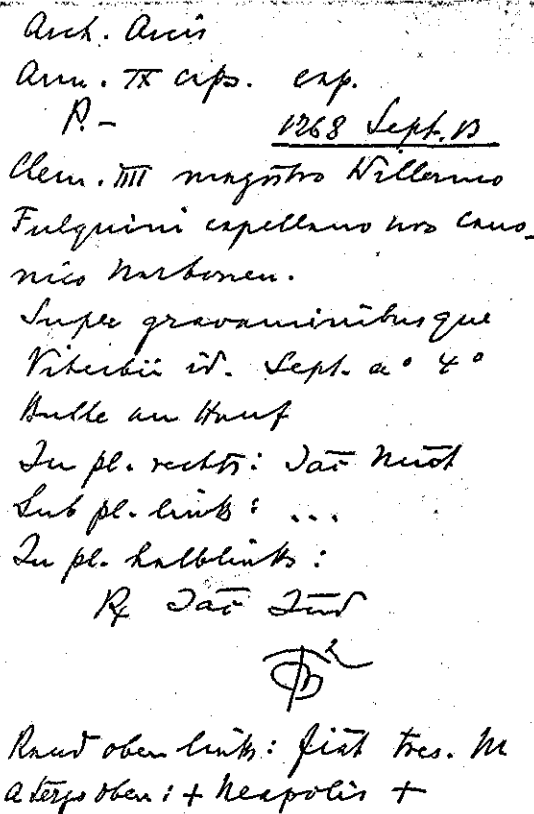 Arch. Arcis
Arm. IX caps. cap.
P. -
1268 Sept. 13
Clem. IIII magistro Willermo
Fulquini capellano nro cano-
nico Narbonen.
Super gravaminibus que
Viterbii id. Sept. a° 4°
Bulle an Hanf
In pl. rechts: Jac
Sub pl. links: ...
In pl. halblinks:
Rx Jac
Rand oben links: fiat tres. M
a tergo oben: + Neapolis +